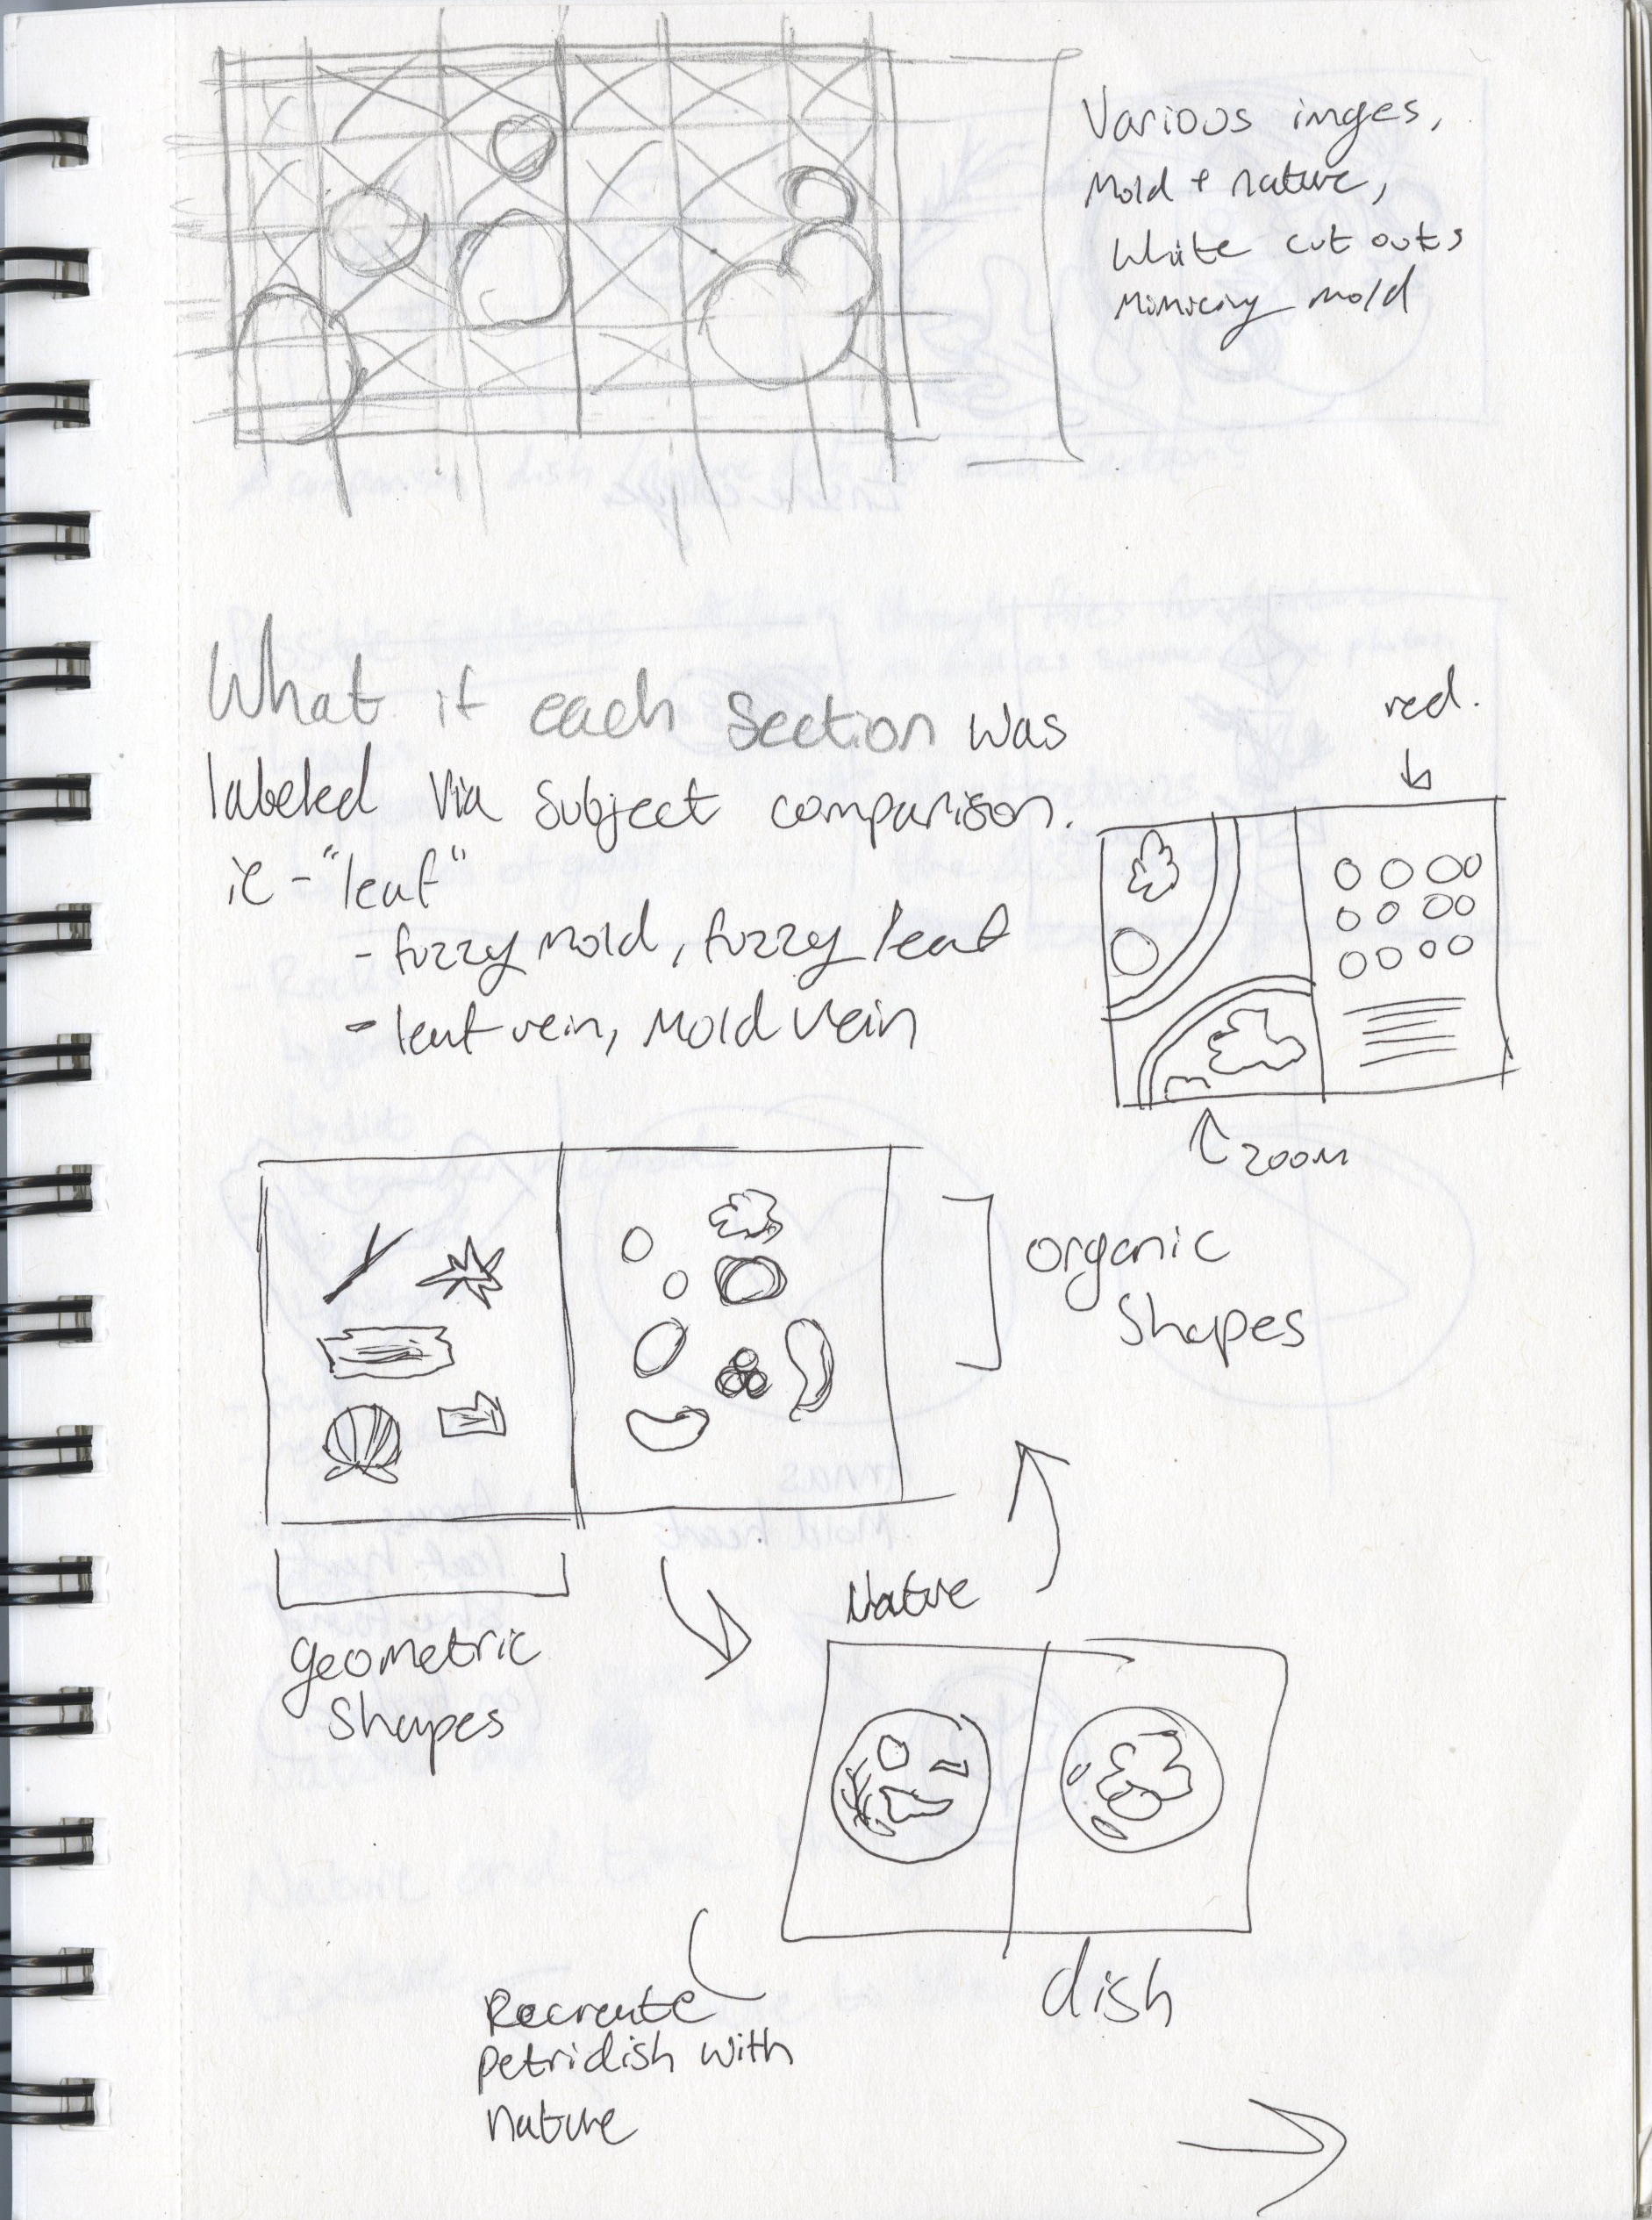 Various imges,
Mold + nature,
White cut outs
Mimicing mold
What if each section was
labeled via subject comparison.
ie - "leaf"
- fuzzy mold, fuzzy leaf
- leaf vein, Mold vein
red.
zoom
organic
shapes
geometric
shapes
Nature
dish
Recreate
petridish with
nature